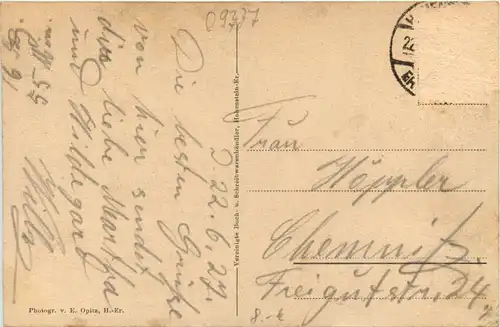 09377
d. 22.6.27.
Die besten Grüße
von hier sendet
dir liebe Martha
und Hildegard
Frau
Höppler
Chemnitz,
Freigutstr. 24.
8.-
Vereinigte Buch- u. Schreibwarenhändler, Hohenstein-Er.
Photogr. v. E. Opitz, H.-Er.